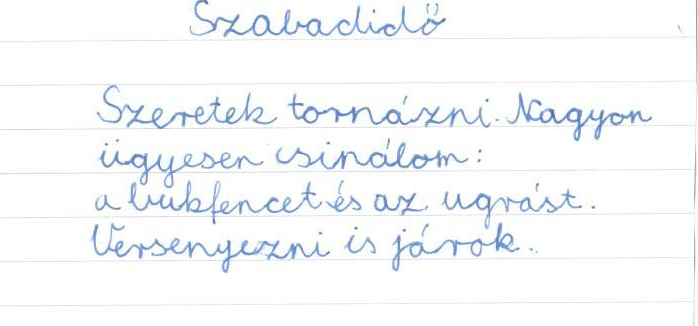 Szabadidő
Szeretek tornázni. Nagyon
ügyesen csinálom:
a bukfencet és az ugrást.
Versenyezni is járok.